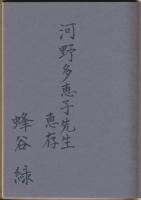 河野多惠子先生
恵存
蜂谷 緑